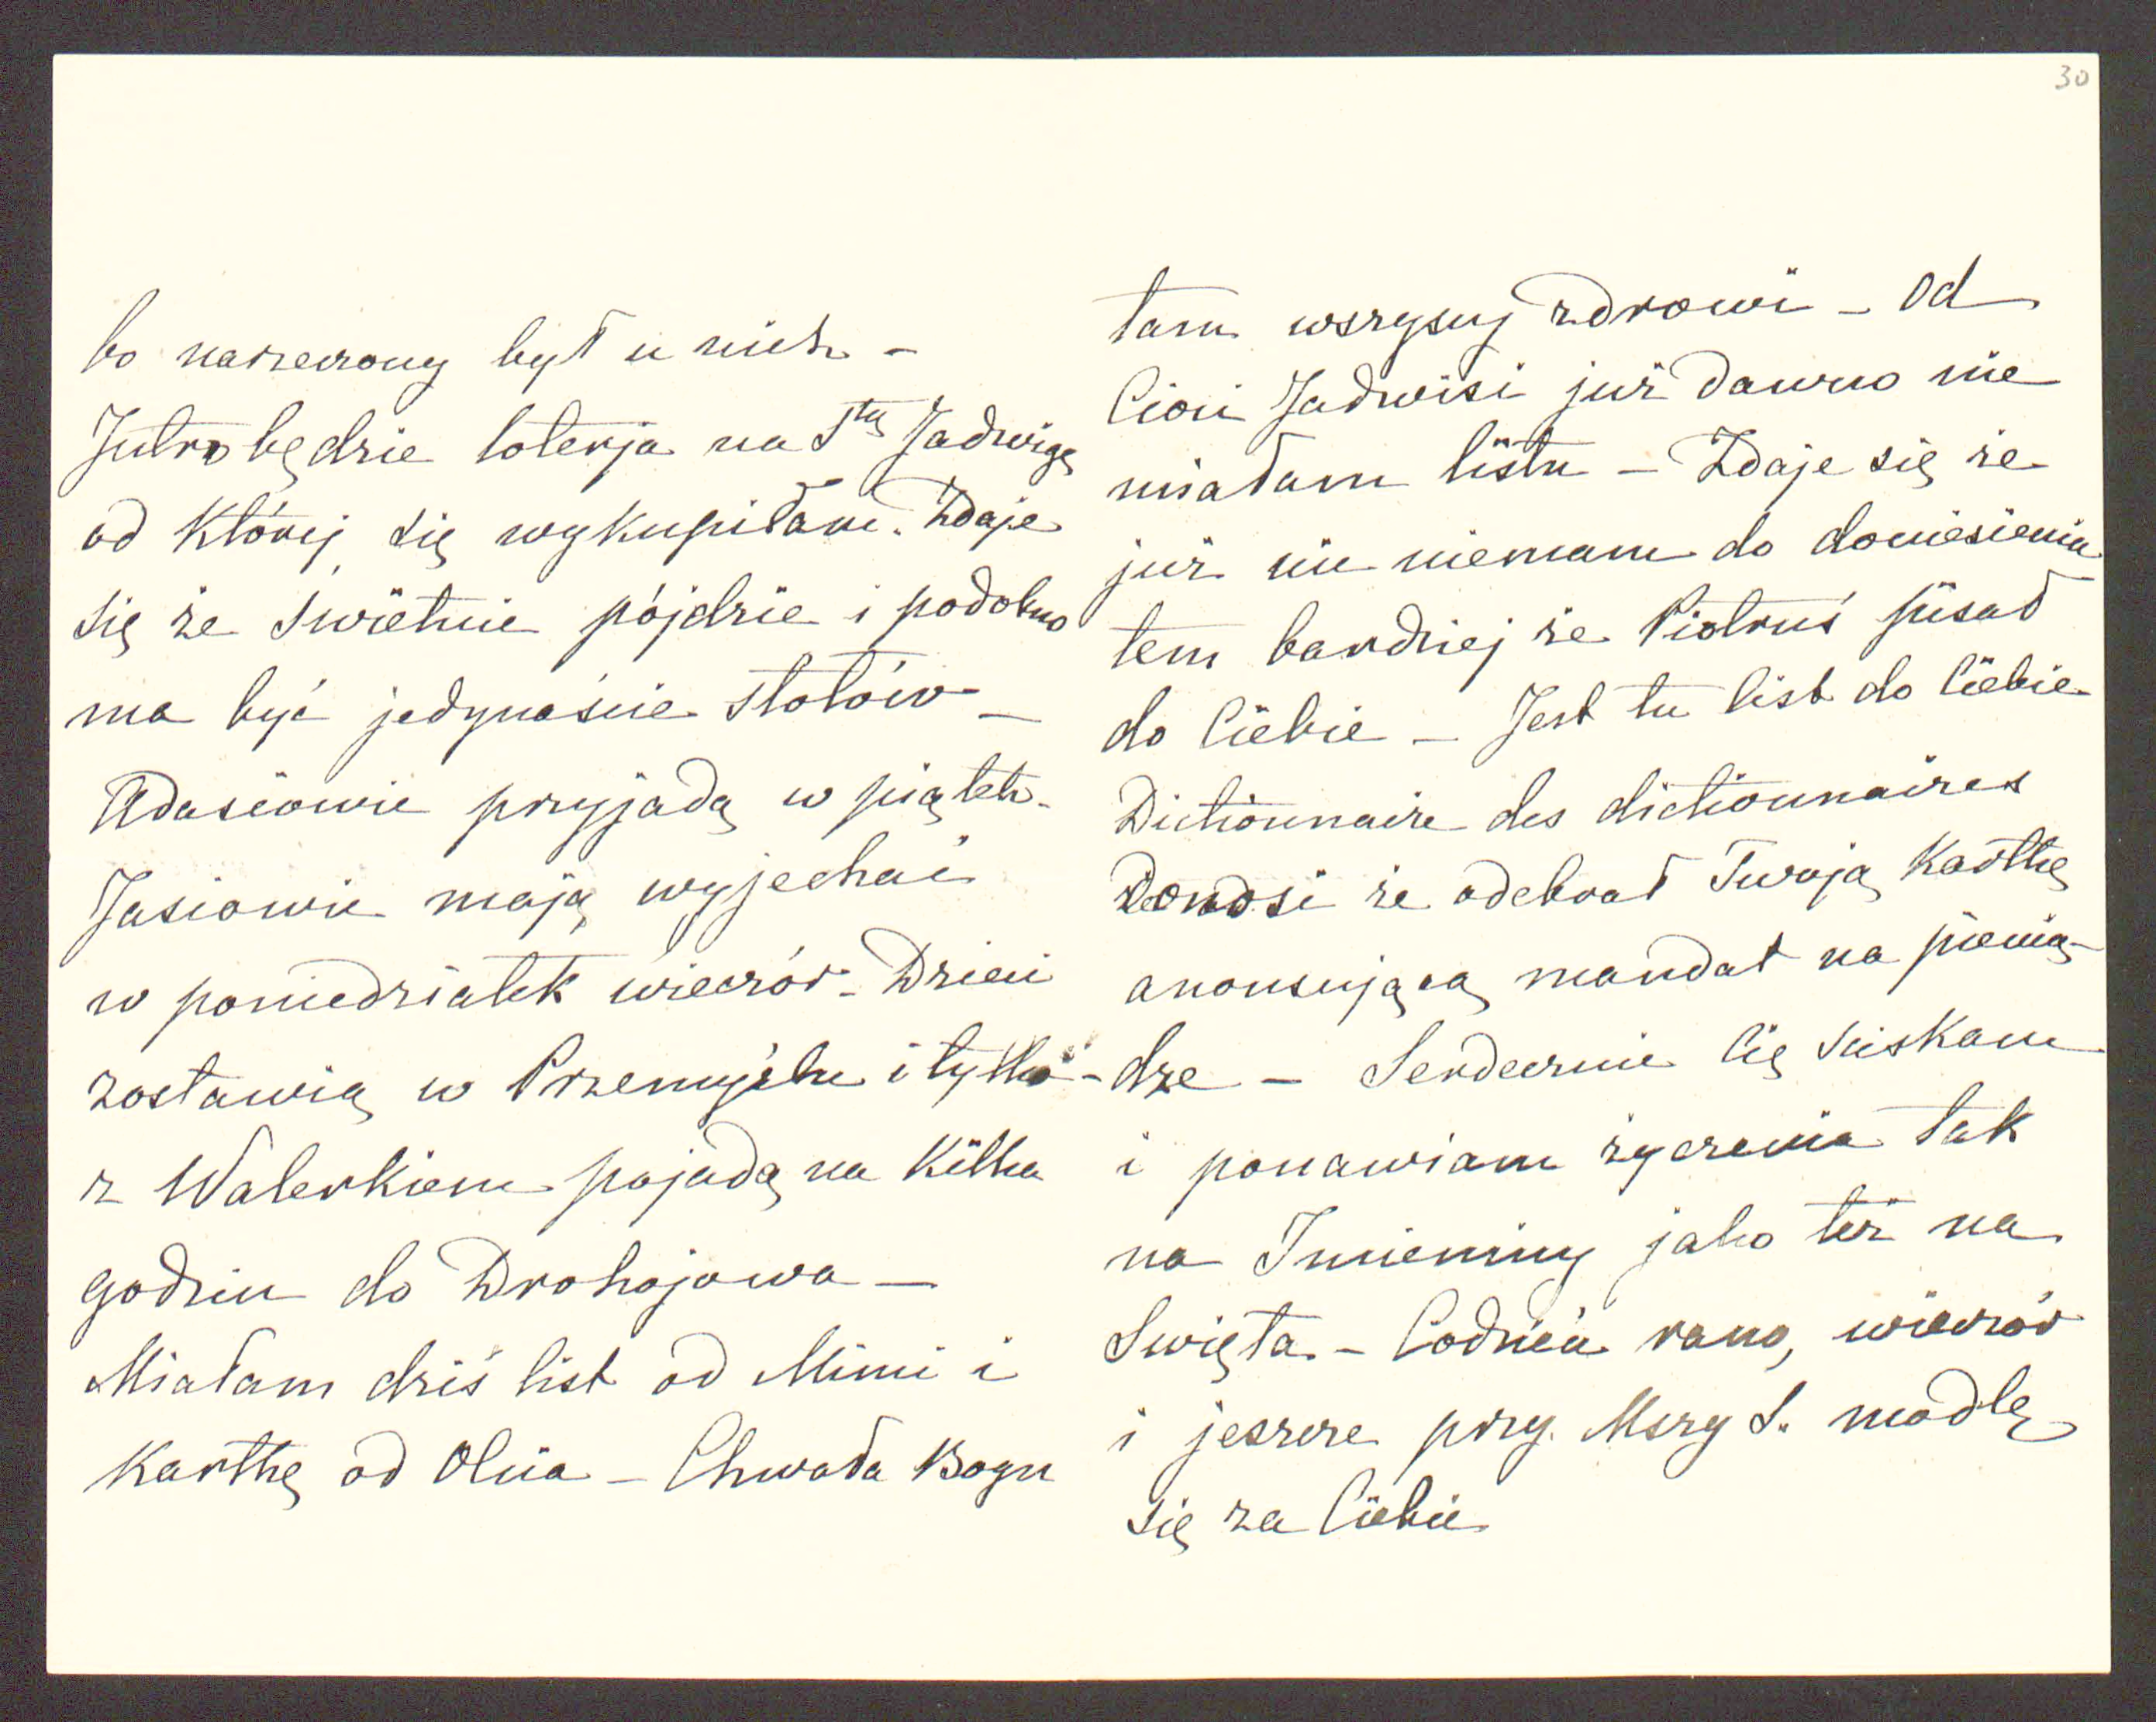 30
bo narzeczony był u nich –
Jutro będzie loterja na Stą Jadwigę
od Której się wykupiłam. Zdaje
się że świetnie pójdzie i podobno
ma być jedynaście stołów –
Adasiowie przyjadą w piątek.
Jasiowie mają wyjechać
w poniedziałek wieczór – Dzieci
zostawią w Przemyślu i tylko
z Walerkiem pojadą na Kilka
godzin do Drohojowa –
Miałam dziś list od Mimi i
Kartkę od Olcia – Chwała Bogu
tam wszyscy zdrowi – Od
Cioci Jadwisi już dawno nie
miałam listu – Zdaje się że
już nic niemam do doniesienia
tem bardziej że Piotruś pisał
do Ciebie – Jest tu list do Ciebie
Dictionnaire des dictionnaires
Donosi że odebrał Twoją Kartkę
anonsującą mandat na pienią-
-dze – Serdecznie Cię ściskam
i ponawiam życzenia tak
na Imieniny jako też na
Swięta – Codzień rano, wieczór
i jeszcze przy. Mszy S. modlę
się za Ciebie